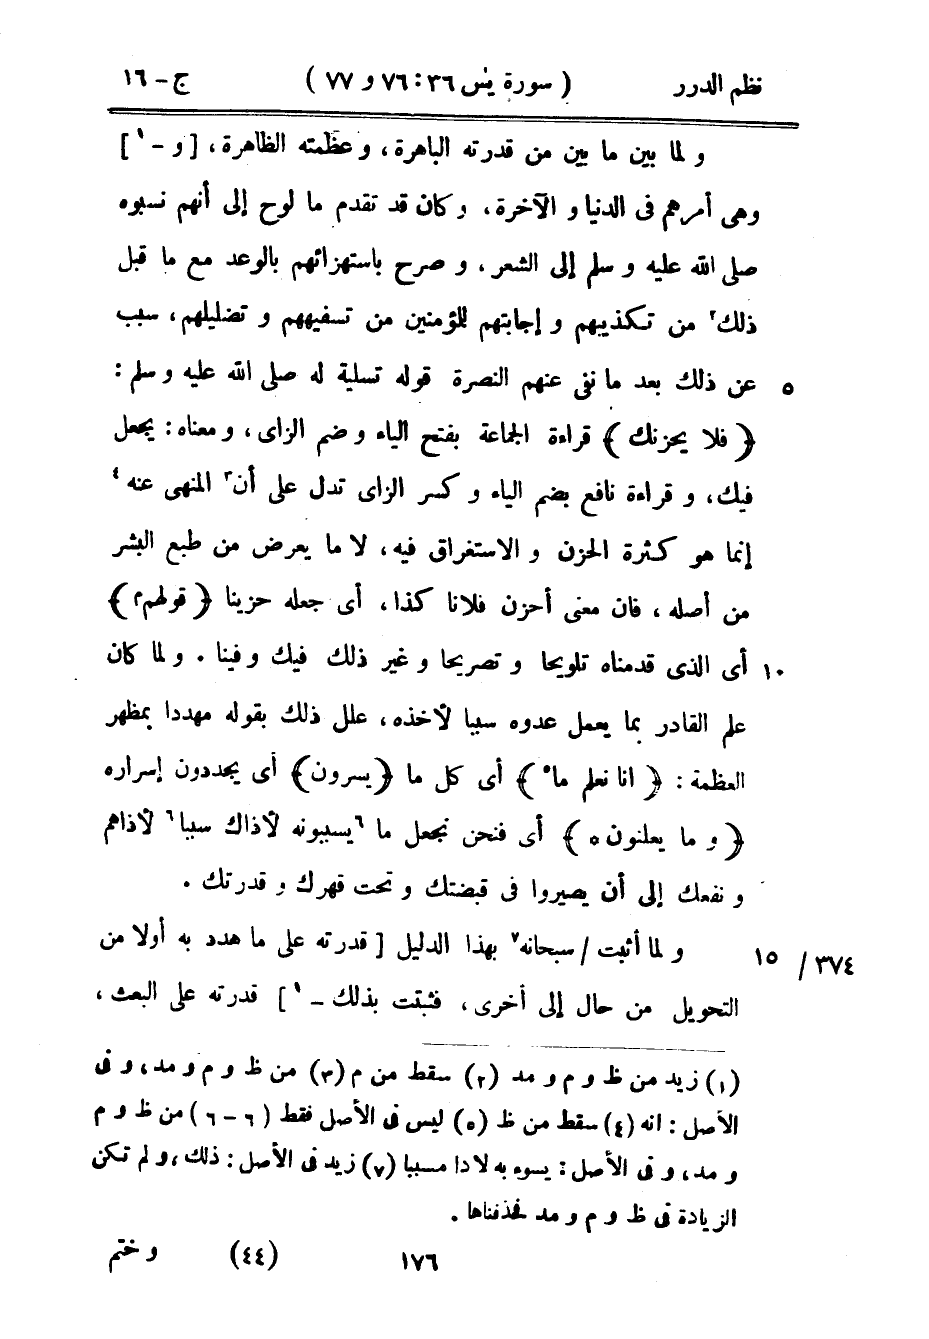 نظم الدرر ( سورة يٰس ٣٦ : ٧٦ و ٧٧ ) ج - ١٦
و لما بين ما بين من قدرته الباهرة، و عظمته الظاهرة، [ و - ١ ]
وهى أمرهم فى الدنيا و الآخرة، و كان قد تقدم ما لوح إلى أنهم نسبوه
صلى الله عليه و سلم إلى الشعر، و صرح باستهزائهم بالوعد مع ما قبل
ذلك ٢ من تكذيبهم و إجابتهم للمؤمنين من تسفيههم و تضليلهم، سبب
٥ عن ذلك بعد ما نفى عنهم النصرة قوله تسلية له صلى الله عليه و سلم :
﴿ فلا يحزنك ﴾ قراءة الجماعة بفتح الياء و ضم الزاى، و معناه : يجعل
فيك، و قراءة نافع بضم الياء و كسر الزاى تدل على أن ٣ المنهى عنه ٤
إنما هو كثرة الحزن و الاستغراق فيه، لا ما يعرض من طبع البشر
من أصله، فان معنى أحزن فلانا كذا، أى جعله حزينا ﴿ قولهم م ﴾
١٠ أى الذى قدمناه تلويحا و تصريحا و غير ذلك فيك و فينا . و لما كان
علم القادر بما يعمل عدوه سببا لأخذه، علل ذلك بقوله مهددا بمظهر
العظمة : ﴿ انا نعلم ما ٥ ﴾ أى كل ما ﴿ يسرون ﴾ أى يجددون إسراره
﴿ و ما يعلنون ه ﴾ أى فنحن نجعل ما ٦ يسببونه لأذاك سببا ٦ لأذاهم
و نفعك إلى أن يصيروا فى قبضتك و تحت قهرك و قدرتك .
٣٧٤ / ١٥ و لما أثبت / سبحانه ٧ بهذا الدليل [ قدرته على ما هدد به أولا من
التحويل من حال إلى أخرى، فثبتت بذلك - ١ ] قدرته على البعث،
(١) زيد من ظ و م و مد (٢) سقط من م (٣) من ظ و م و مد، و فى
الأصل : انه (٤) سقط من ظ (٥) ليس فى الأصل فقط (٦ - ٦) من ظ و م
و مد، و فى الأصل : يسوءبه لادا مسببا (٧) زيد فى الأصل : ذلك، و لم تكن
الزيادة فى ظ و م و مد فحذفناها .
١٧٦ (٤٤) و ختم